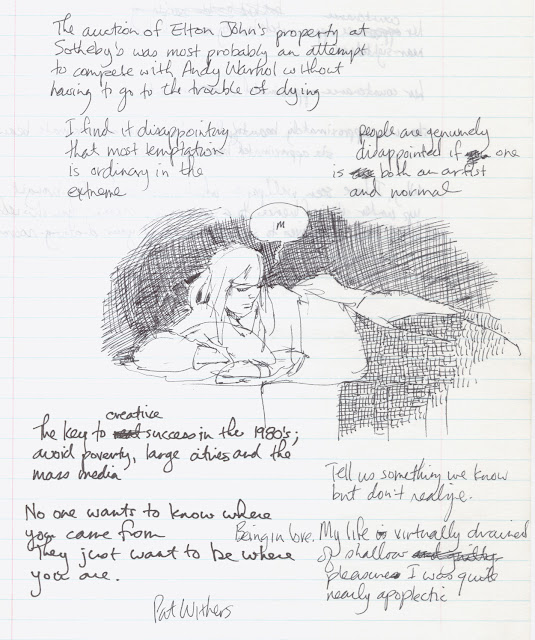 The auction of Elton John's property at
Sotheby's was most probably an attempt
to compete with Andy Warhol without
having to go to the trouble of dying
I find it disappointing
that most temptation
is ordinary in the
extreme
people are genuinely
disappointed if one
is both an artist
and normal
M
creative
The key to success in the 1980's;
avoid poverty, large cities and the
mass media
Tell us something we know
but don't realize.
No one wants to know where
you came from
They just want to be where
you are.
Being in love. My life is virtually drained
of shallow
pleasures I was quite
nearly apoplectic
Pat Withers